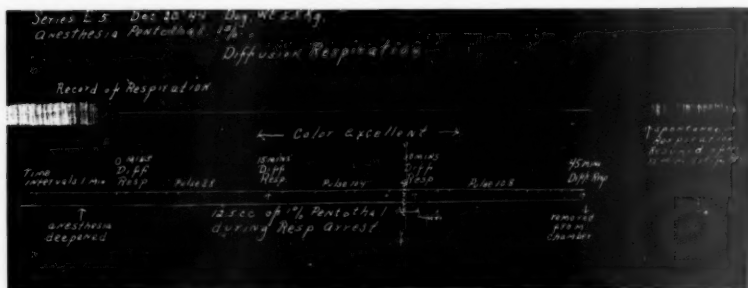 Series E 5 Dec 20 '44 Dog, Wt 5.5 Kg,
Anesthesia Pentothal 1%
Diffusion Respiration
Record of Respiration
← Color Excellent →
↑ Spontaneous
Respiration
Resumed after
Time
intervals 1 min
0 mins
Diff
Resp
Pulse 88
15 mins
Diff
Resp.
Pulse 104
Diff
Resp
Pulse 108
45 min
Diff Resp
↑
anesthesia
deepened
12.5 cc of 1% Pentothal
during Resp Arrest
removed
from
chamber